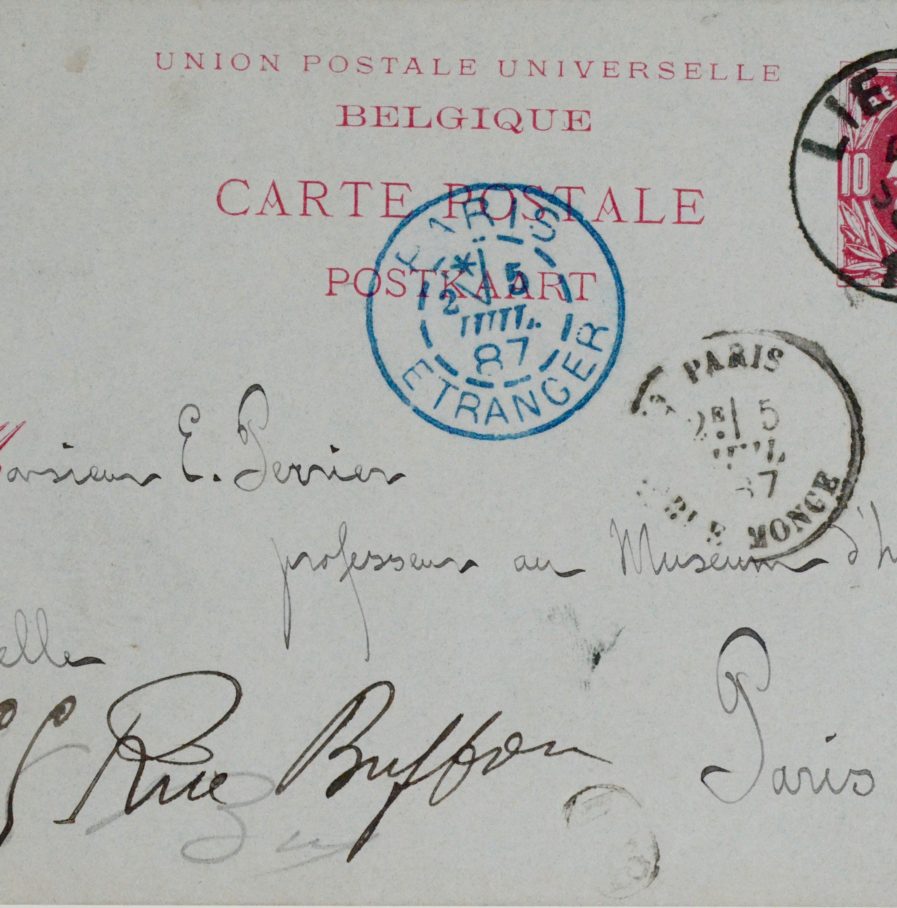 UNION POSTALE UNIVERSELLE
BELGIQUE
CARTE POSTALE
POSTKAART
10
LIE
PARIS
2E 5
JUIL.
87
ETRANGER
PARIS
2E 5
87
MONGE
Monsieur E. Perrier
professeur au Museum d'h
elle
Rue Buffon
Paris